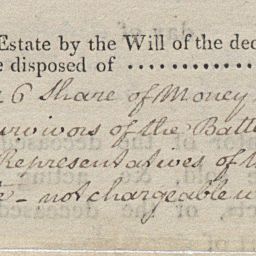 Estate by the Will of the dec
e disposed of ................
6 Share of Money
urvivors of the Batt
Representatives of t
not chargeable